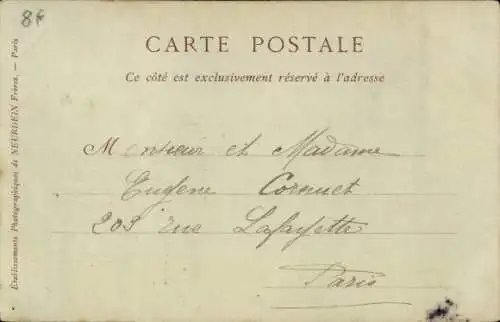 8f
CARTE POSTALE
Ce côté est exclusivement réservé à l'adresse
Monsieur et Madame
Eugène Cornuet
203 rue Lafayette
Paris
Établissements Photographiques de NEURDEIN Frères. — Paris